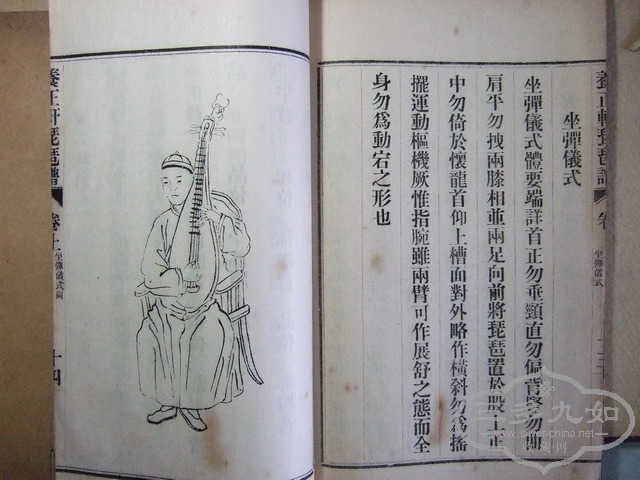 養正軒琵琶譜 卷
坐彈儀式
坐彈儀式
坐彈儀式體要端詳首正勿垂頸直勿偏背豎勿
肩平勿拽兩膝相並兩足向前將琵琶置於股上正
中勿倚於懷龍首仰上槽面對外略作橫斜勿爲搖
擺運動樞機厥惟指腕雖兩臂可作展舒之態而全
身勿爲動宕之形也
養正軒琵琶譜 卷上 坐彈儀式圖 十四
多九如
www.silver-china.com